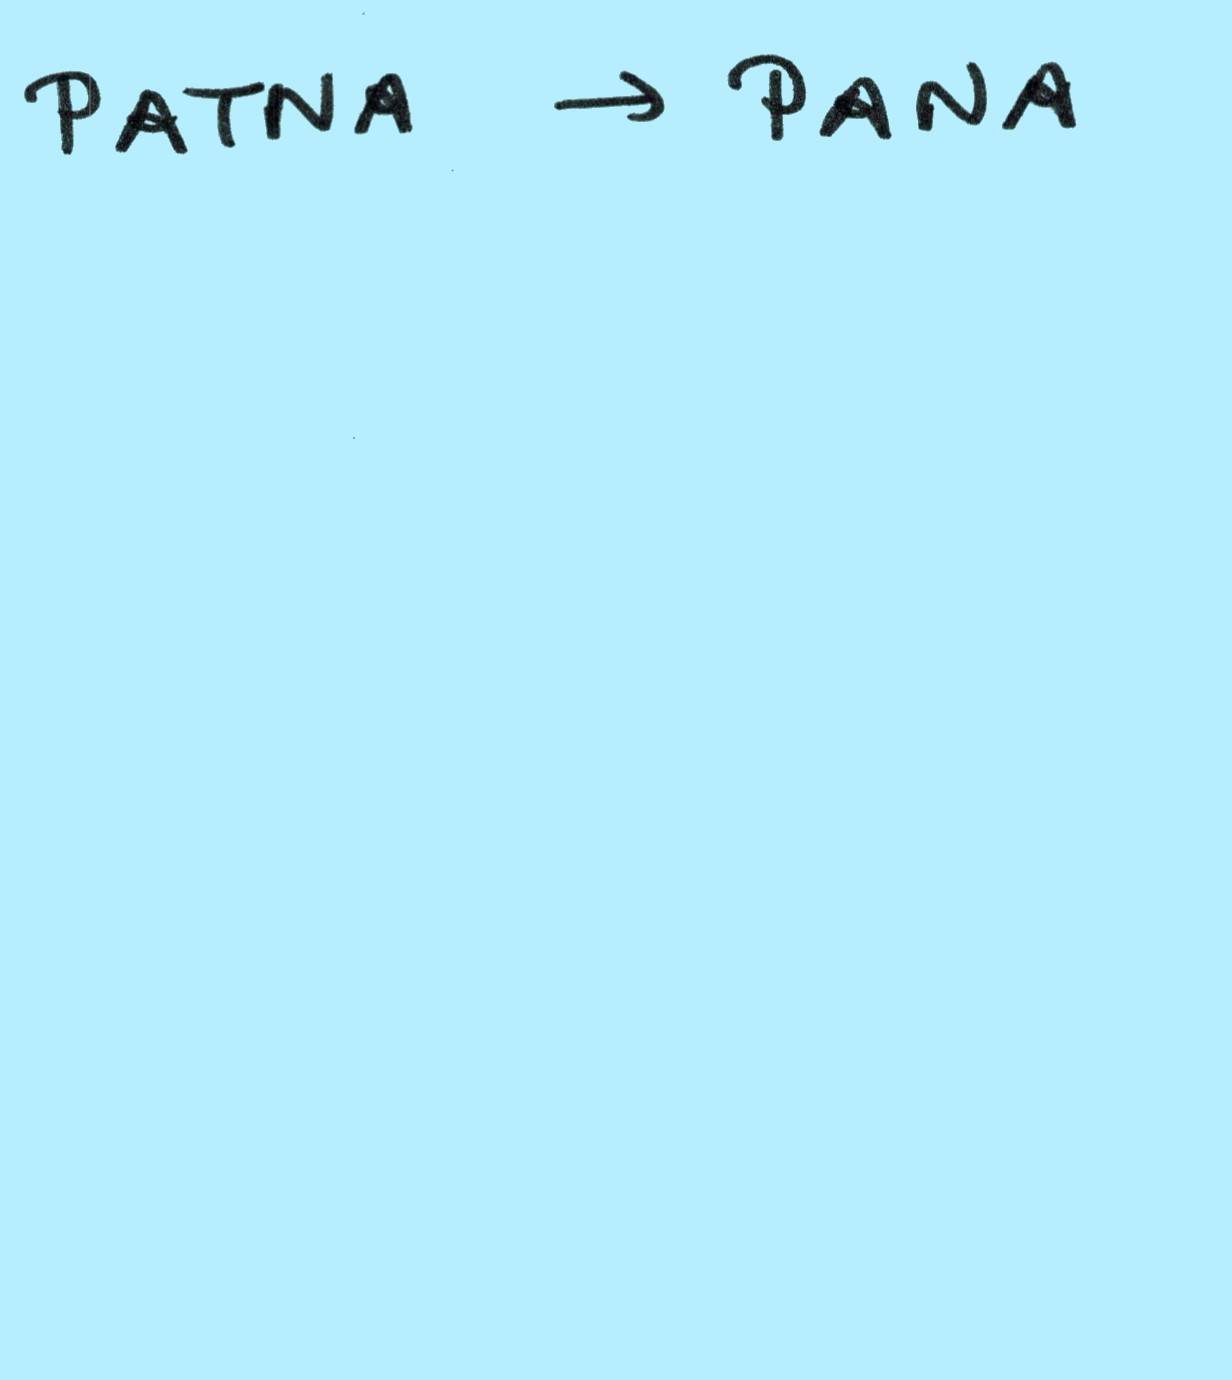 PATNA → PANA